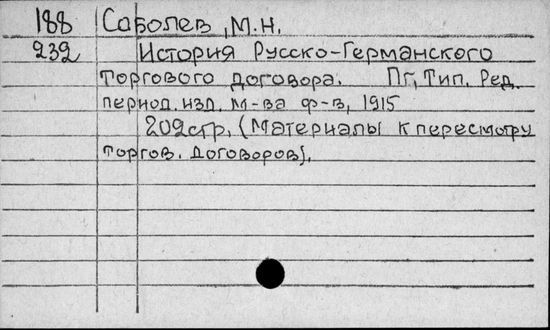 188 Соболев, М.Н.
232 История Русско-Германского
торгового договора. Пг, Тип. Ред.
период. изд. м-ва ф-в, 1915
202стр. (Материалы к пересмотру
торгов. договоров).